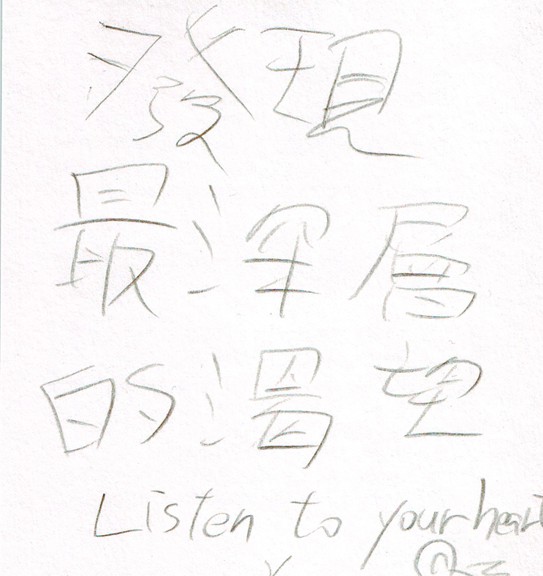 發現
最深層
的渴望
Listen to your heart